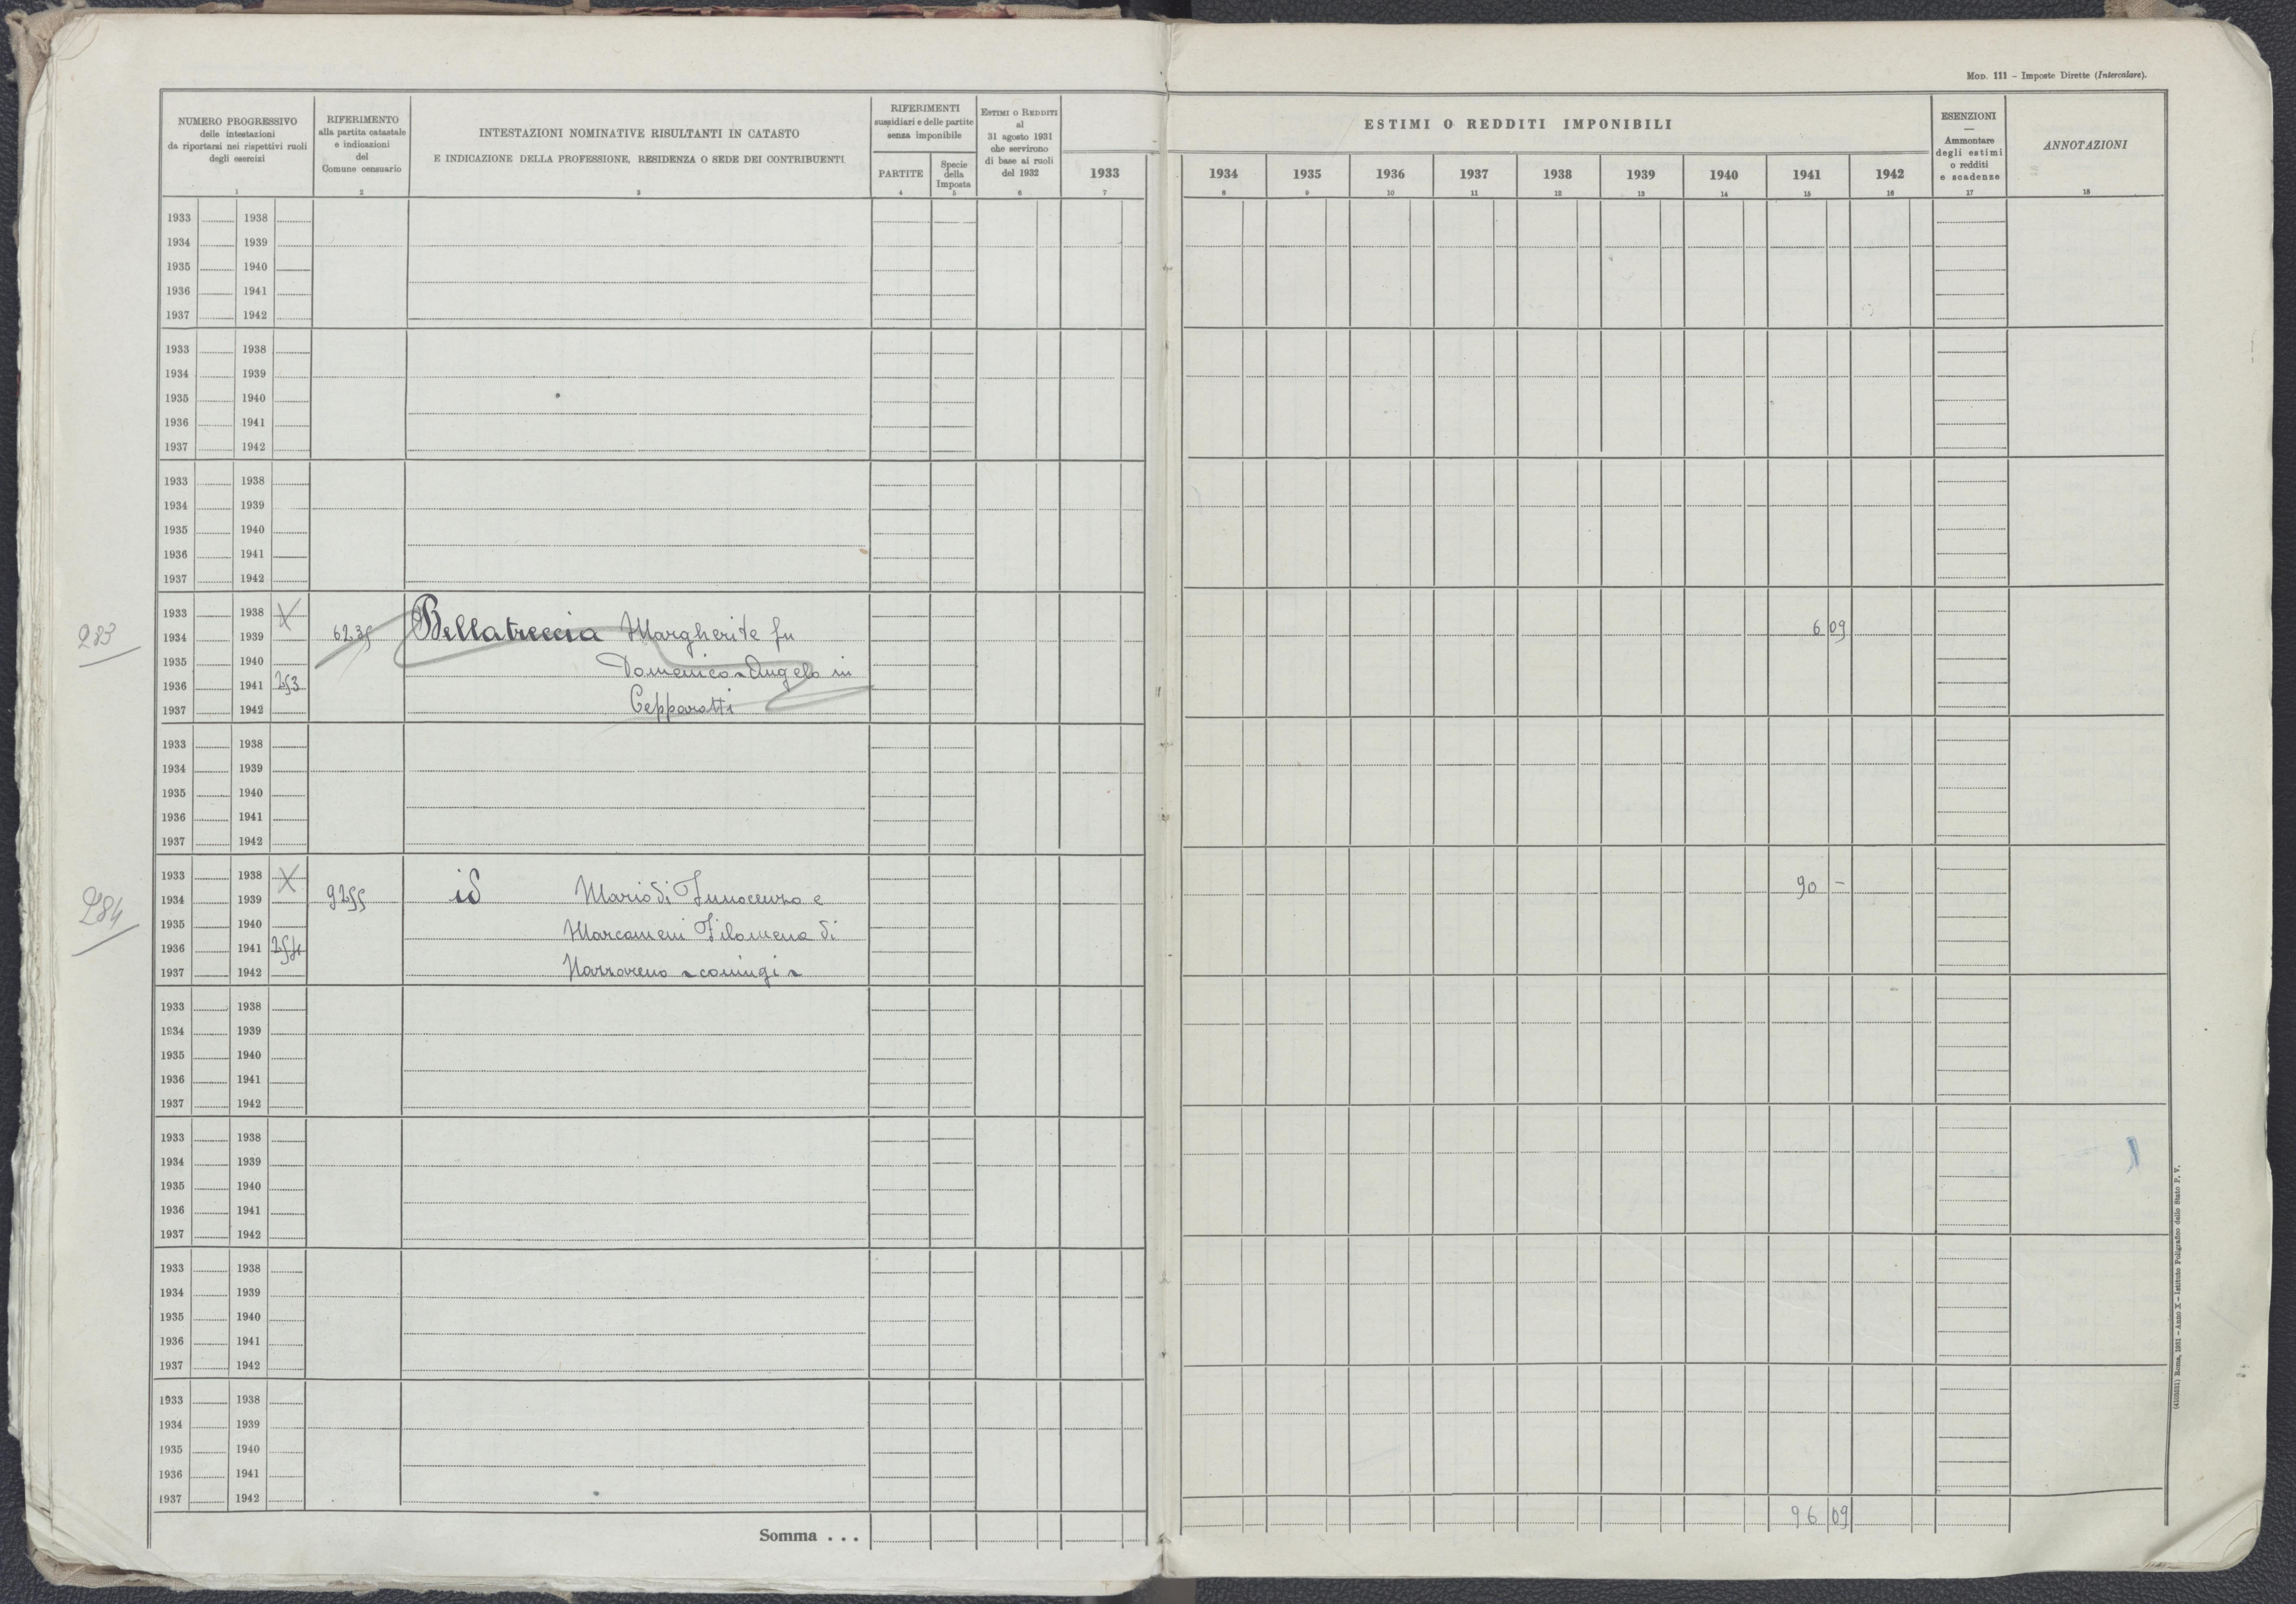 MOD. 111 – Imposte Dirette (Intercalare).
NUMERO PROGRESSIVO
delle intestazioni
da riportarsi nei rispettivi ruoli
degli esercizi
1
RIFERIMENTO
alla partita catastale
e indicazioni
del
Comune censuario
2
INTESTAZIONI NOMINATIVE RISULTANTI IN CATASTO
E INDICAZIONE DELLA PROFESSIONE, RESIDENZA O SEDE DEI CONTRIBUENTI
3
RIFERIMENTI
sussidiari e delle partite
senza imponibile
PARTITE
4
Specie
della
Imposta
5
ESTIMI O REDDITI
al
31 agosto 1931
che servirono
di base ai ruoli
del 1932
6
1933
7
ESTIMI O REDDITI IMPONIBILI
1934 1935 1936 1937 1938 1939 1940 1941 1942
8 9 10 11 12 13 14 15 16
ESENZIONI
—
Ammontare
degli estimi
o redditi
e scadenze
17
ANNOTAZIONI
18
1933 1938
1934 1939
1935 1940
1936 1941
1937 1942
1933 1938
1934 1939
1935 1940
1936 1941
1937 1942
1933 1938
1934 1939
1935 1940
1936 1941
1937 1942
1933 1938 X
283 1934 1939 6235 Bellatreccia Margherita fu 6 09
1935 1940 Domenico Angelo in
1936 1941 253
1937 1942 Cepparotti
1933 1938
1934 1939
1935 1940
1936 1941
1937 1942
1933 1938 X
284 1934 1939 9255 id Mario di Innocenzo e 90 –
1935 1940 Marcomeni Filomena di
1936 1941 254
1937 1942 Nazzareno - coniugi -
1933 1938
1934 1939
1935 1940
1936 1941
1937 1942
1933 1938
1934 1939
1935 1940
1936 1941
1937 1942
1933 1938
1934 1939
1935 1940
1936 1941
1937 1942
1933 1938
1934 1939
1935 1940
1936 1941
1937 1942
Somma . . . 96 09
(4105031) Roma, 1931 – Anno X – Istituto Poligrafico dello Stato P. V.